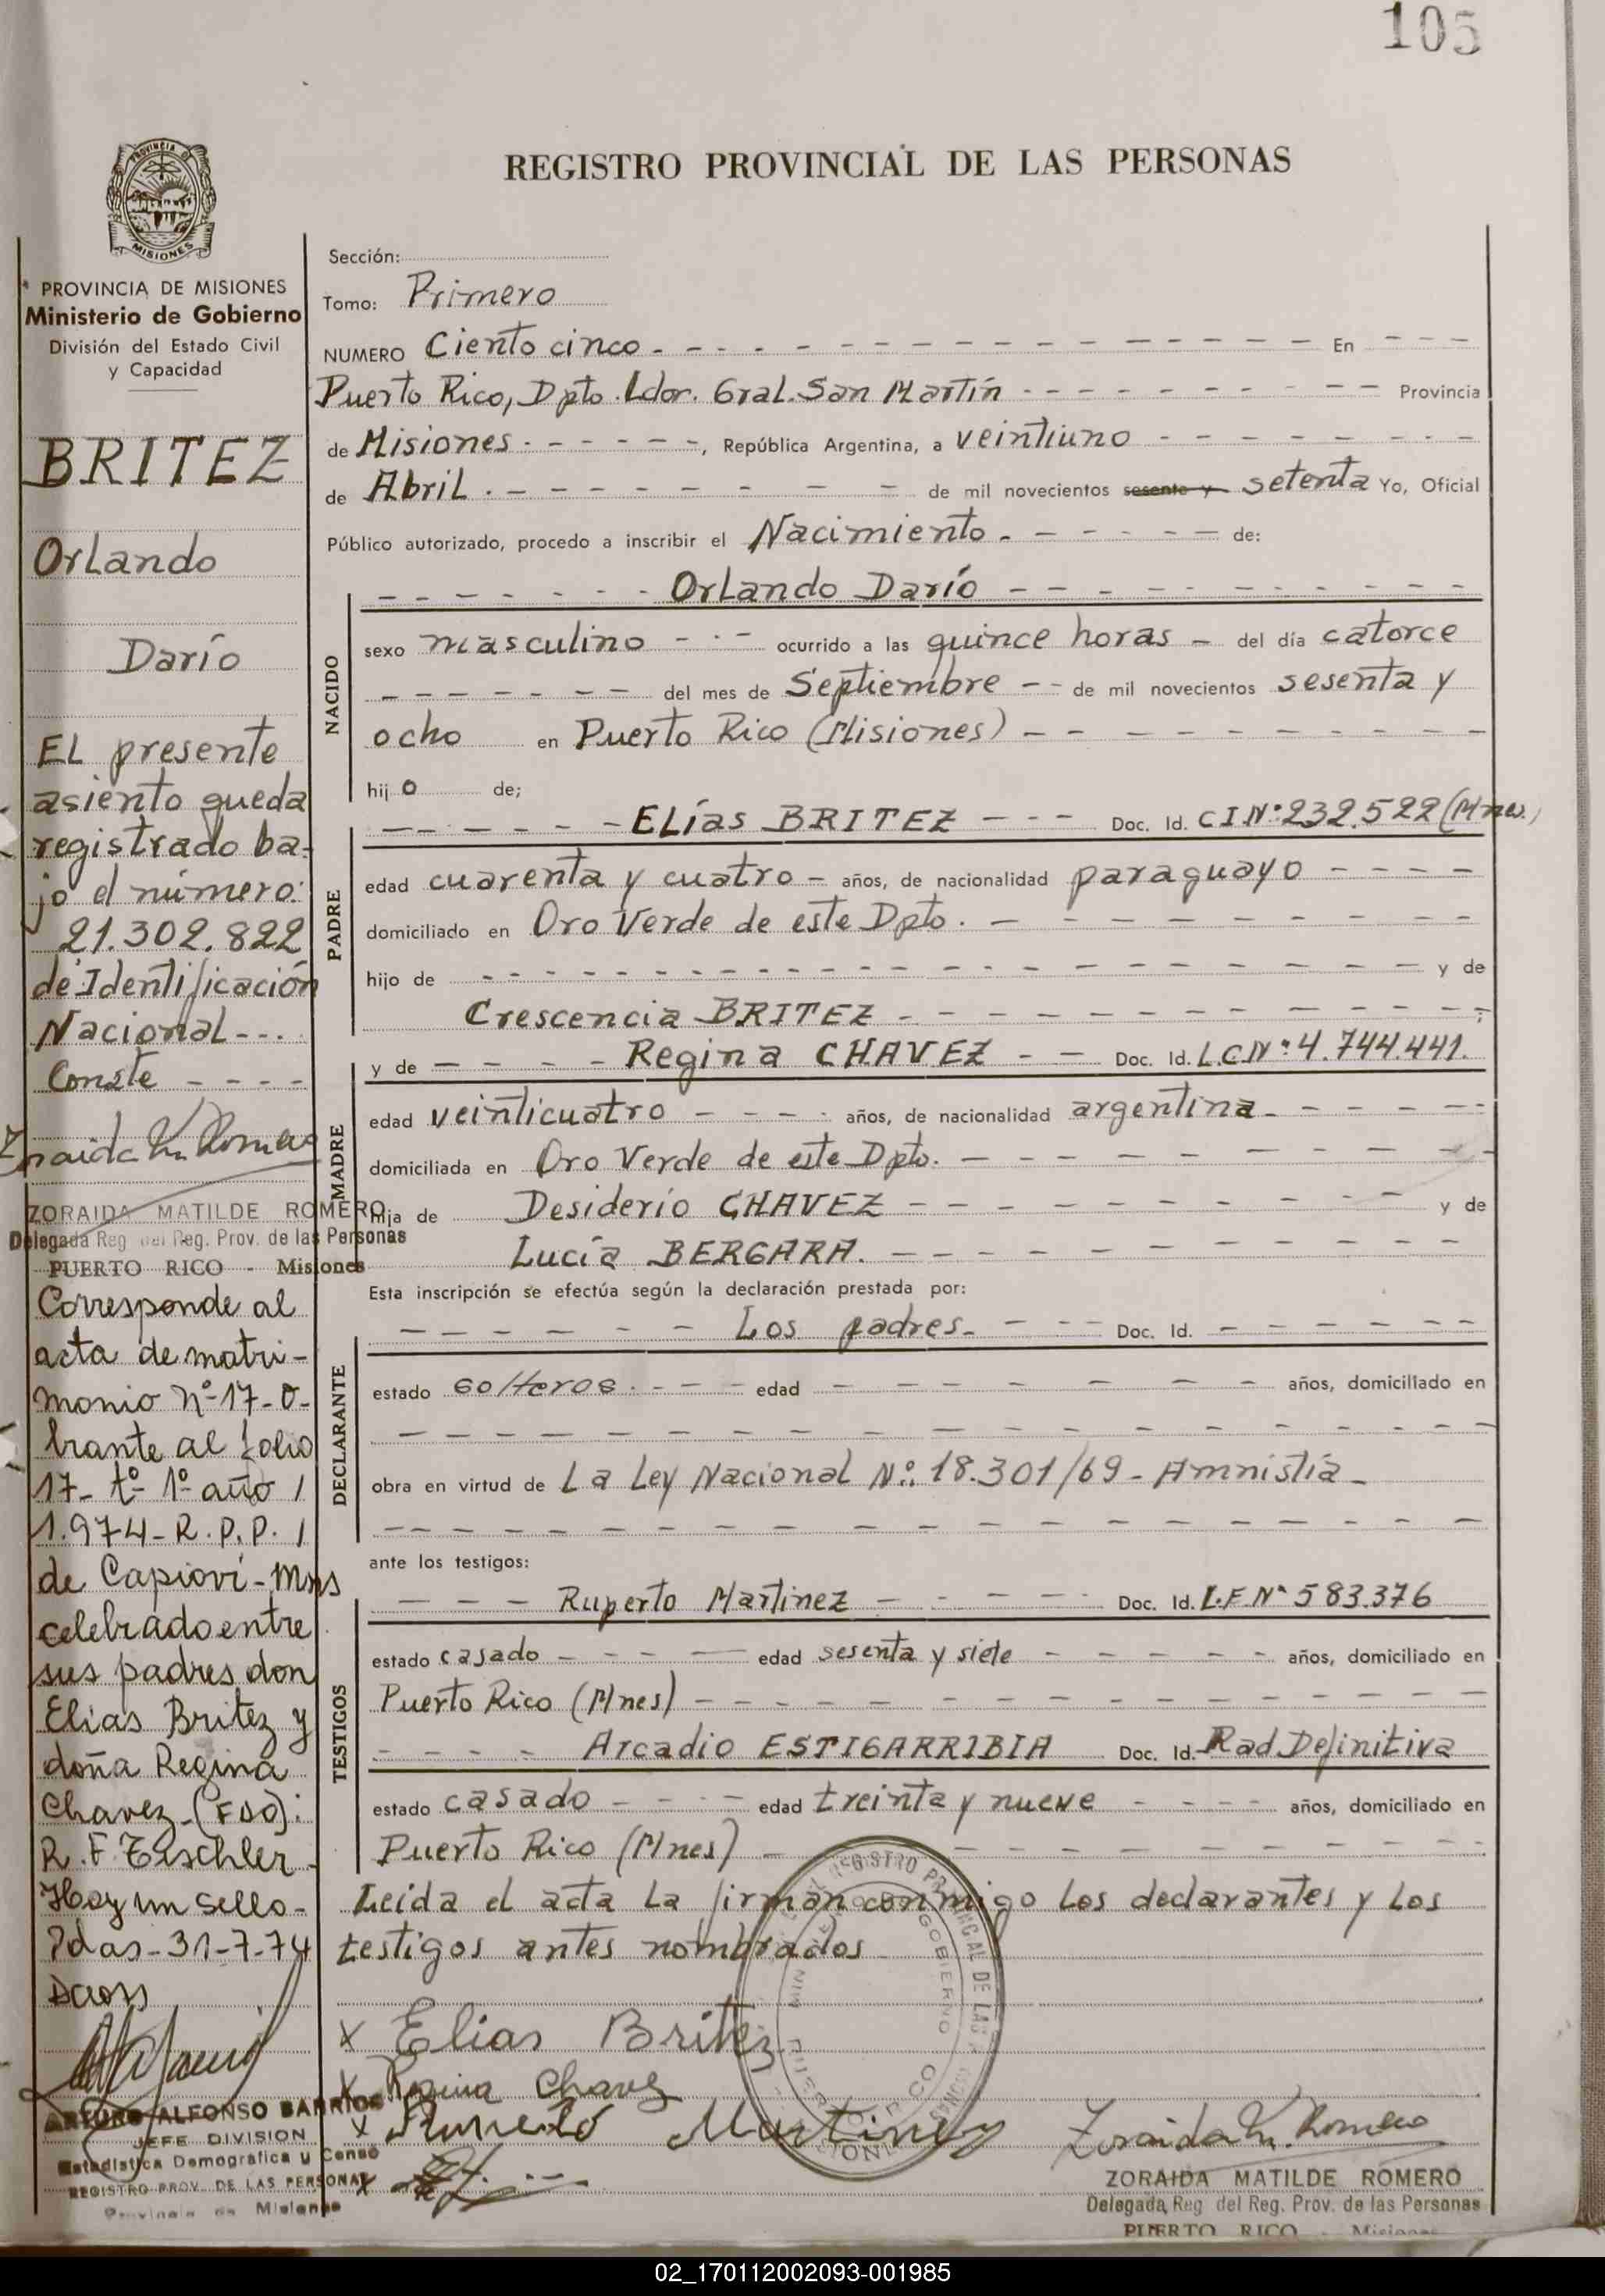 105
REGISTRO PROVINCIAL DE LAS PERSONAS
PROVINCIA DE MISIONES
MISIONES
PROVINCIA DE MISIONES
Ministerio de Gobierno
División del Estado Civil
y Capacidad
BRITEZ
Orlando
Darío
EL presente
asiento queda
registrado ba-
jo el número:
21.302.822
de Identificación
Nacional---.
Conste ----
Zoraida M. Romero
ZORAIDA MATILDE ROMERO
Delegada Reg. del Reg. Prov. de las Personas
PUERTO RICO - Misiones
Corresponde al
acta de matri-
monio nº-17-o-
brante al folio
17- tº- 1º año /
1.974- R.P.P. /
de Capioví-Mns
celebrado entre
sus padres don
Elias Britez y
doña Regina
Chavez-(FDO):
R.F.
Hay un sello-
Pdas-31-7-74
ARTURO ALFONSO BARRIOS
JEFE DIVISION
Estadística Demografica y Censo
REGISTRO PROV. DE LAS PERSONAS
Provincia de Misiones
Sección:
Tomo: Primero
NUMERO Ciento cinco.- - - - En - - -
Puerto Rico, Dpto. Ldor. Gral. San Martín - - - - Provincia
de Misiones.- - - - -, República Argentina, a veintiuno - - - -
de Abril.- - - - - de mil novecientos sesenta y setenta Yo, Oficial
Público autorizado, procedo a inscribir el Nacimiento.- - - - - de:
NACIDO
- - - - Orlando Darío - - - -
sexo masculino - - - ocurrido a las quince horas - del día catorce
- - - - del mes de Septiembre - - de mil novecientos sesenta y
ocho en Puerto Rico (Misiones) - - - -
hijo de;
PADRE
- - - - Elías BRITEZ - - - Doc. Id. CIN:232.522(Mnes.)
edad cuarenta y cuatro - años, de nacionalidad paraguayo - - - -
domiciliado en Oro Verde de este Dpto. - - - -
hijo de - - - - y de
Crescencia BRITEZ - - - - ;
MADRE
y de - - - - Regina CHAVEZ - - Doc. Id. L.C.Nº:4.744.441.
edad veinticuatro - - - - años, de nacionalidad argentina - - - -
domiciliada en Oro Verde de este Dpto. - - - -
hija de Desiderio CHAVEZ - - - - y de
Lucía BERGARA. - - - -
Esta inscripción se efectúa según la declaración prestada por:
DECLARANTE
- - - - Los padres. - - - Doc. Id. - - - -
estado solteros. - - - edad - - - - años, domiciliado en
- - - -
obra en virtud de La Ley Nacional Nº: 18.301/69 - Amnistía -
- - - -
ante los testigos:
TESTIGOS
- - - Ruperto Martinez - - - - Doc. Id. L.E Nº 583.376
estado casado - - - - edad sesenta y siete - - - - años, domiciliado en
Puerto Rico (Mnes) - - - -
- - - - Arcadio ESTIGARRIBIA Doc. Id. Rad Definitiva
estado casado - - - - edad treinta y nueve - - - - años, domiciliado en
Puerto Rico (Mnes) - - - -
Leída el acta la firman conmigo los declarantes y los
testigos antes nombrados
x Elias Britez
x Regina Chavez
x Ruperto Martinez
x
Zoraida M. Romero
ZORAIDA MATILDE ROMERO
Delegada Reg del Reg. Prov. de las Personas
PUERTO RICO - Misiones
02_170112002093-001985